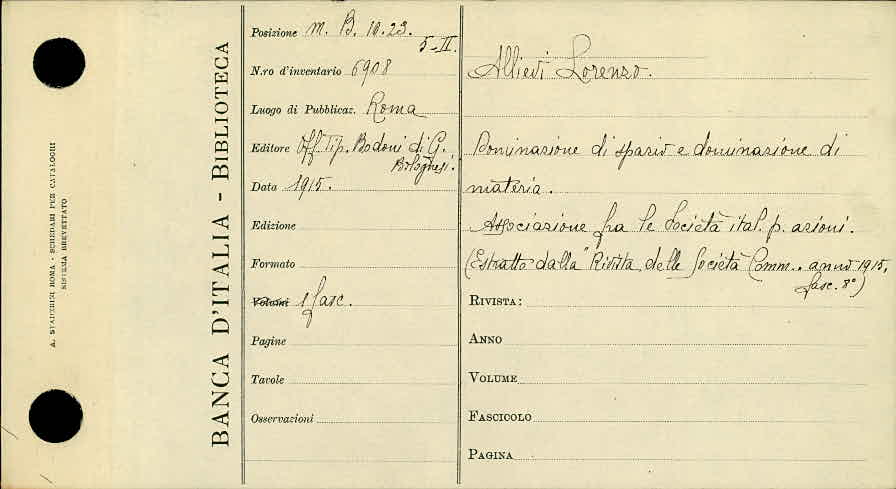 A. STADERINI ROMA - SCHEDARI PER CATALOGHI
SISTEMA BREVETTATO
BANCA D'ITALIA - BIBLIOTECA
Posizione M. B. 10.23.
5-II.
N.ro d'inventario 6908
Luogo di Pubblicaz. Roma
Editore Off. Tip. Bodoni di G.
Bolognesi.
Data 1915.
Edizione
Formato
Volumi 1 fasc.
Pagine
Tavole
Osservazioni
Allievi Lorenzo.
Dominazione di spazio e dominazione di
materia.
Associazione fra le Società ital. p. azioni.
(Estratto dalla "Rivista delle Società Comm. anno 1915,
fasc. 8°)
RIVISTA:
ANNO
VOLUME
FASCICOLO
PAGINA